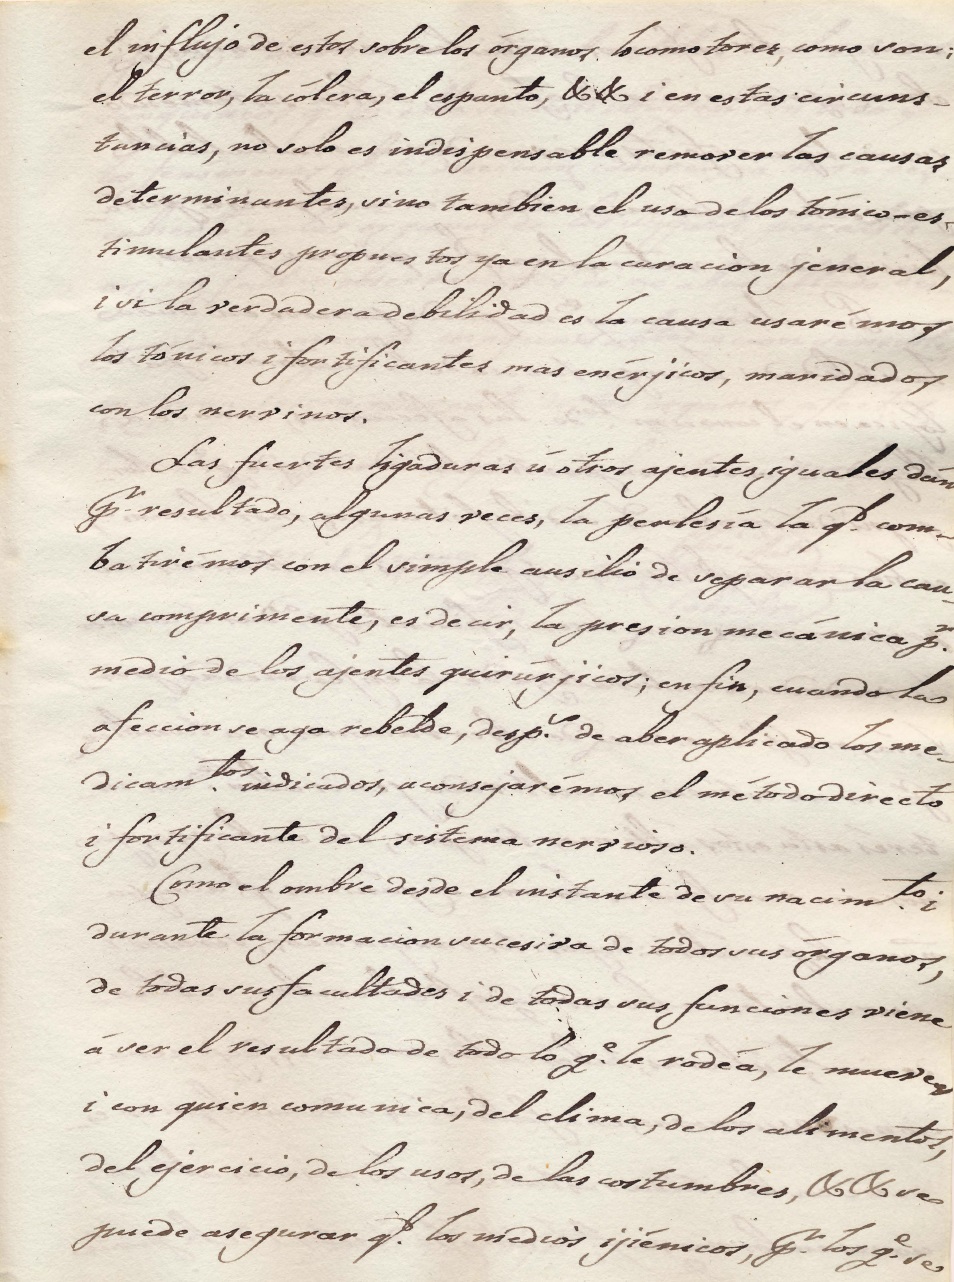 el influjo de estos sobre los órganos locomotores, como son:
el terror, la cólera, el espanto, && i en estas circuns-
tancias, no solo es indispensable remover las causas
determinantes, sino tambien el uso de los tónico-es-
timulantes propuestos ya en la curacion jeneral,
i si la verdadera debilidad es la causa usarémos
los tónicos i fortificantes mas enérjicos, maridados
con los nervinos.
Las fuertes ligaduras ú otros ajentes iguales dán
pr. resultado, algunas veces, la perlesía la qe. com-
batirémos con el simple ausilio de separar la cau-
sa comprimente, es decir, la presion mecánica pr.
medio de los ajentes quirúrjicos; en fin, cuando las
afeccion se aga rebelde, desps. de aber aplicado los me-
dicamtos. indicados, aconsejarémos el método directo
i fortificante del sistema nervioso.
Como el ombre desde el instante de su nacimto. i
durante la formacion sucesiva de todos sus órganos,
de todas sus facultades i de todas sus funciones viene
á ser el resultado de todo lo qe. le rodéa, le mueve
i con quien comunica, del clima, de los alimentos,
del ejercicio, de los usos, de las costumbres, && se
puede asegurar qe. los medios ijiénicos, pr. los qe. se